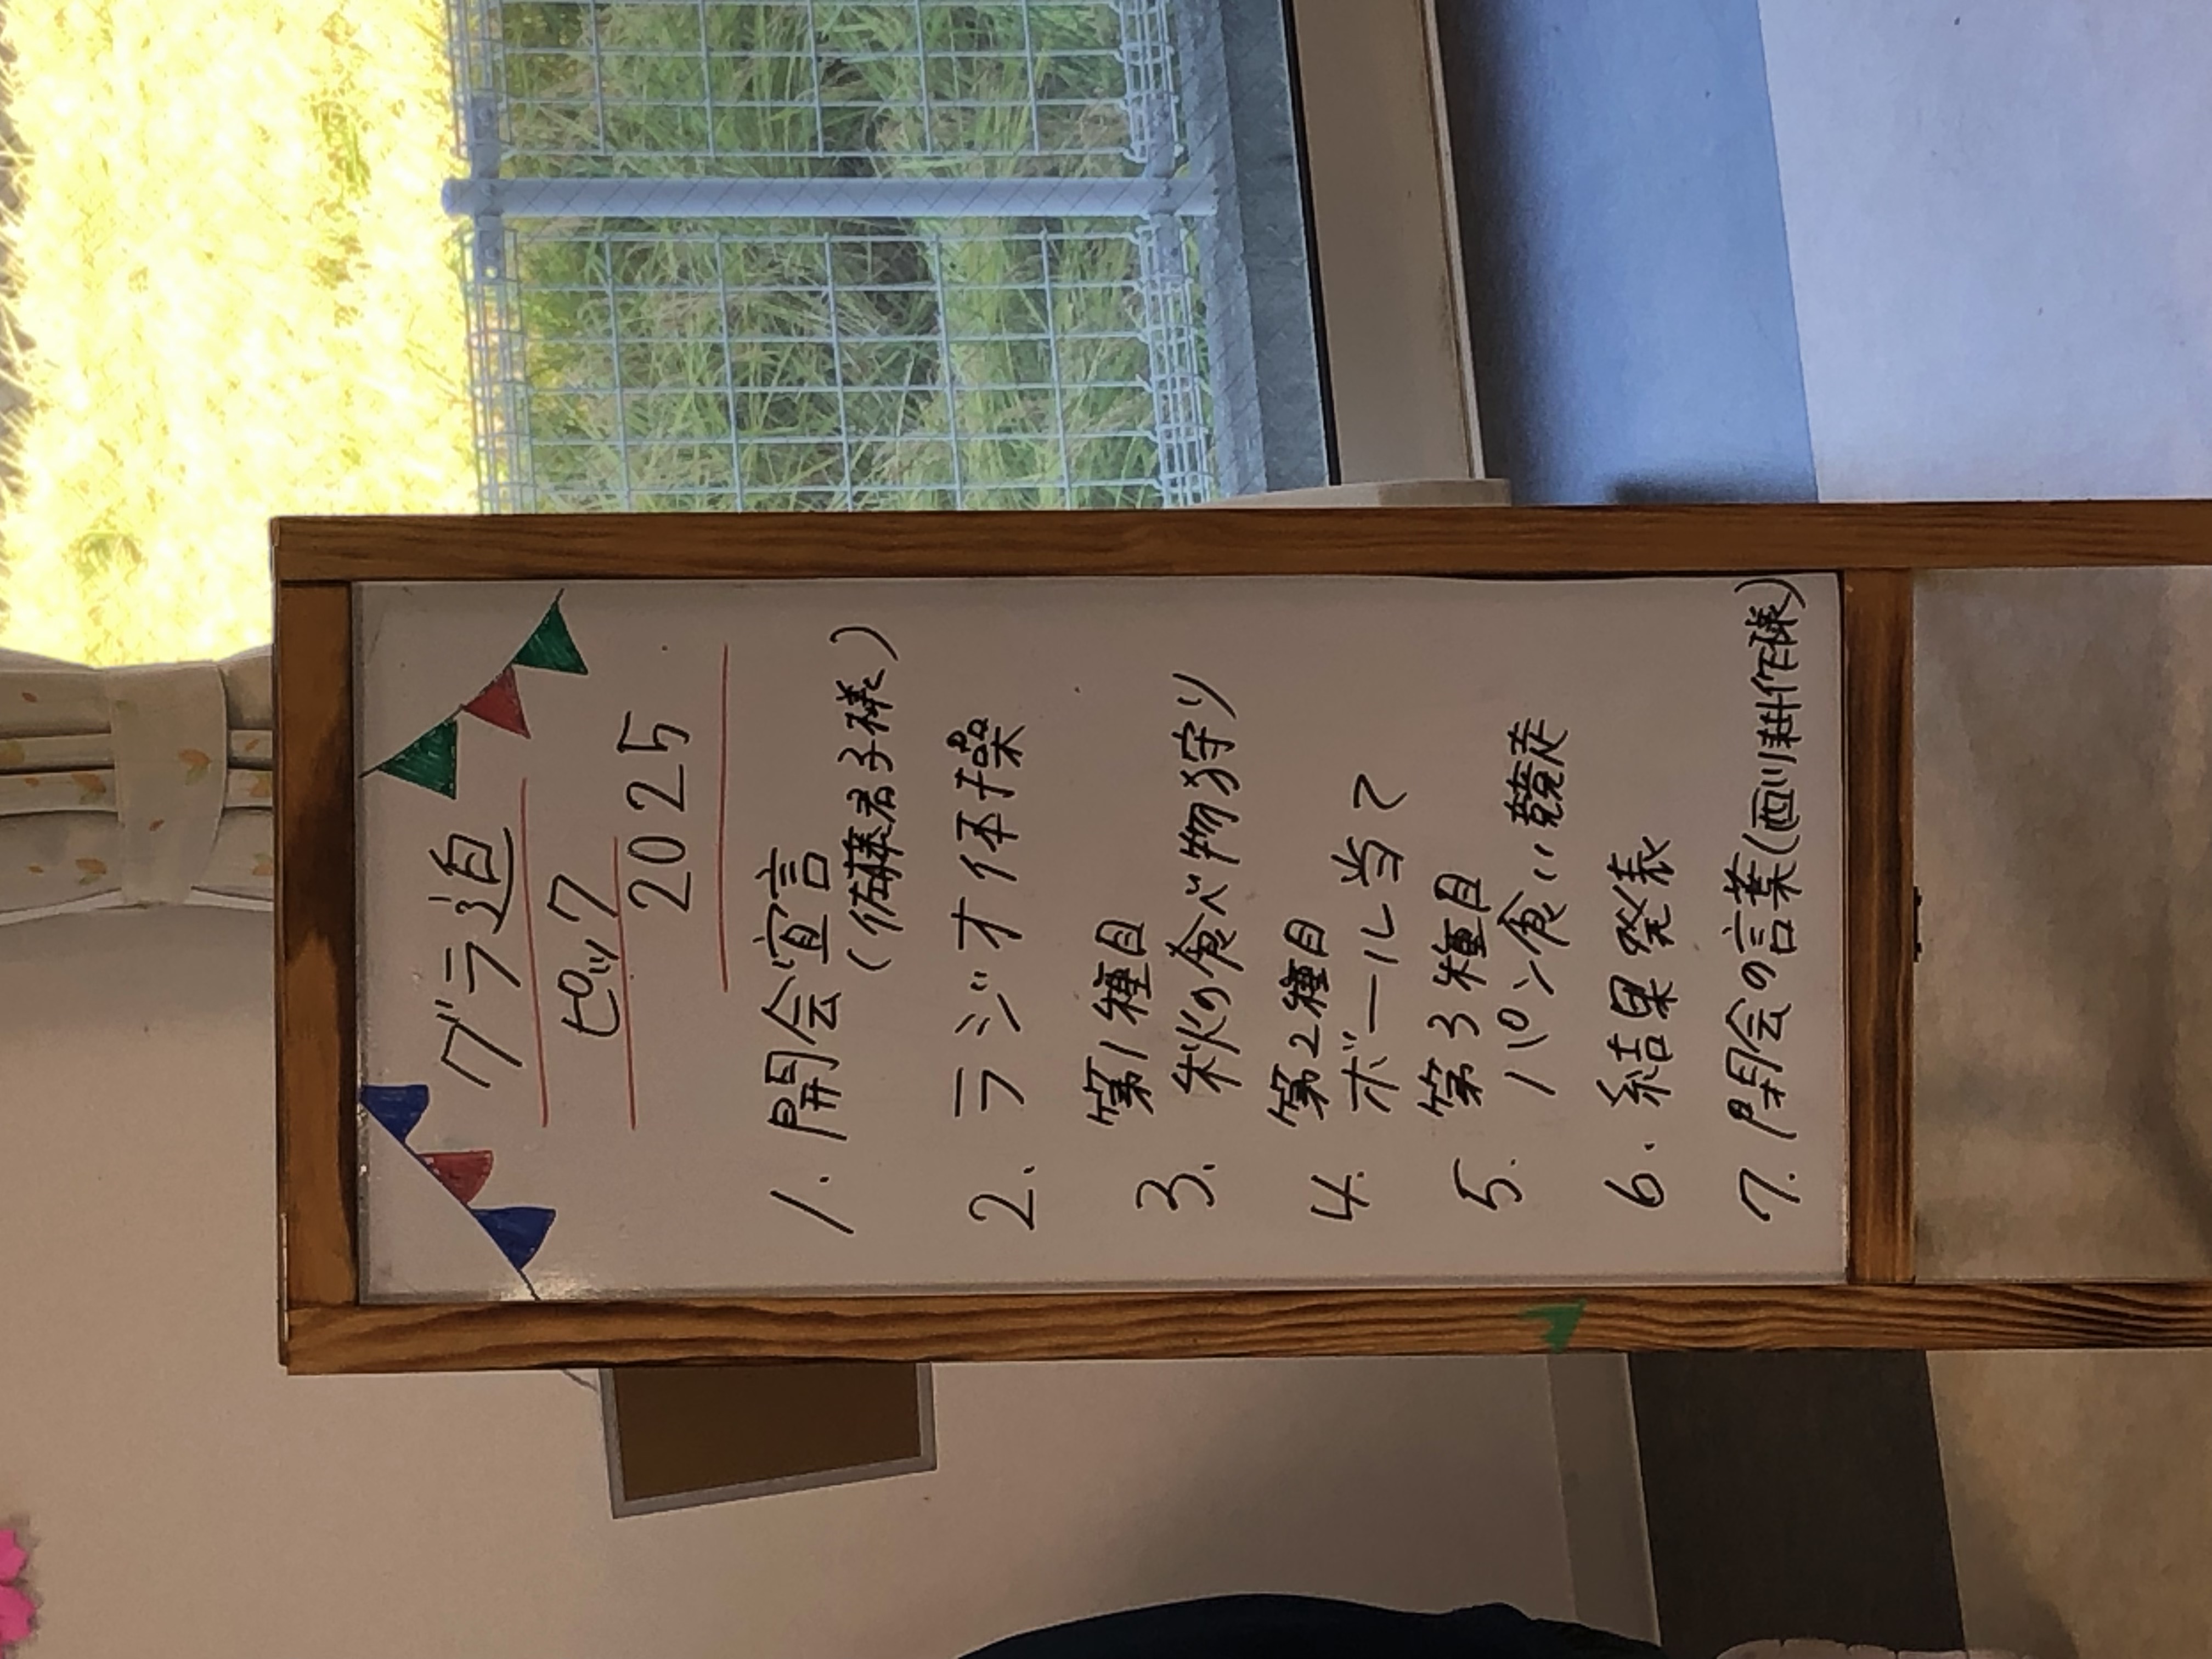 グラ迫
ピック
2025
1. 開会宣言
(佐藤君子様)
2. ラジオ体操
3. 第1種目
秋の食べ物狩り
4. 第2種目
ボール当て
5. 第3種目
パン食い競走
6. 結果発表
7. 閉会の言葉(西川耕作様)